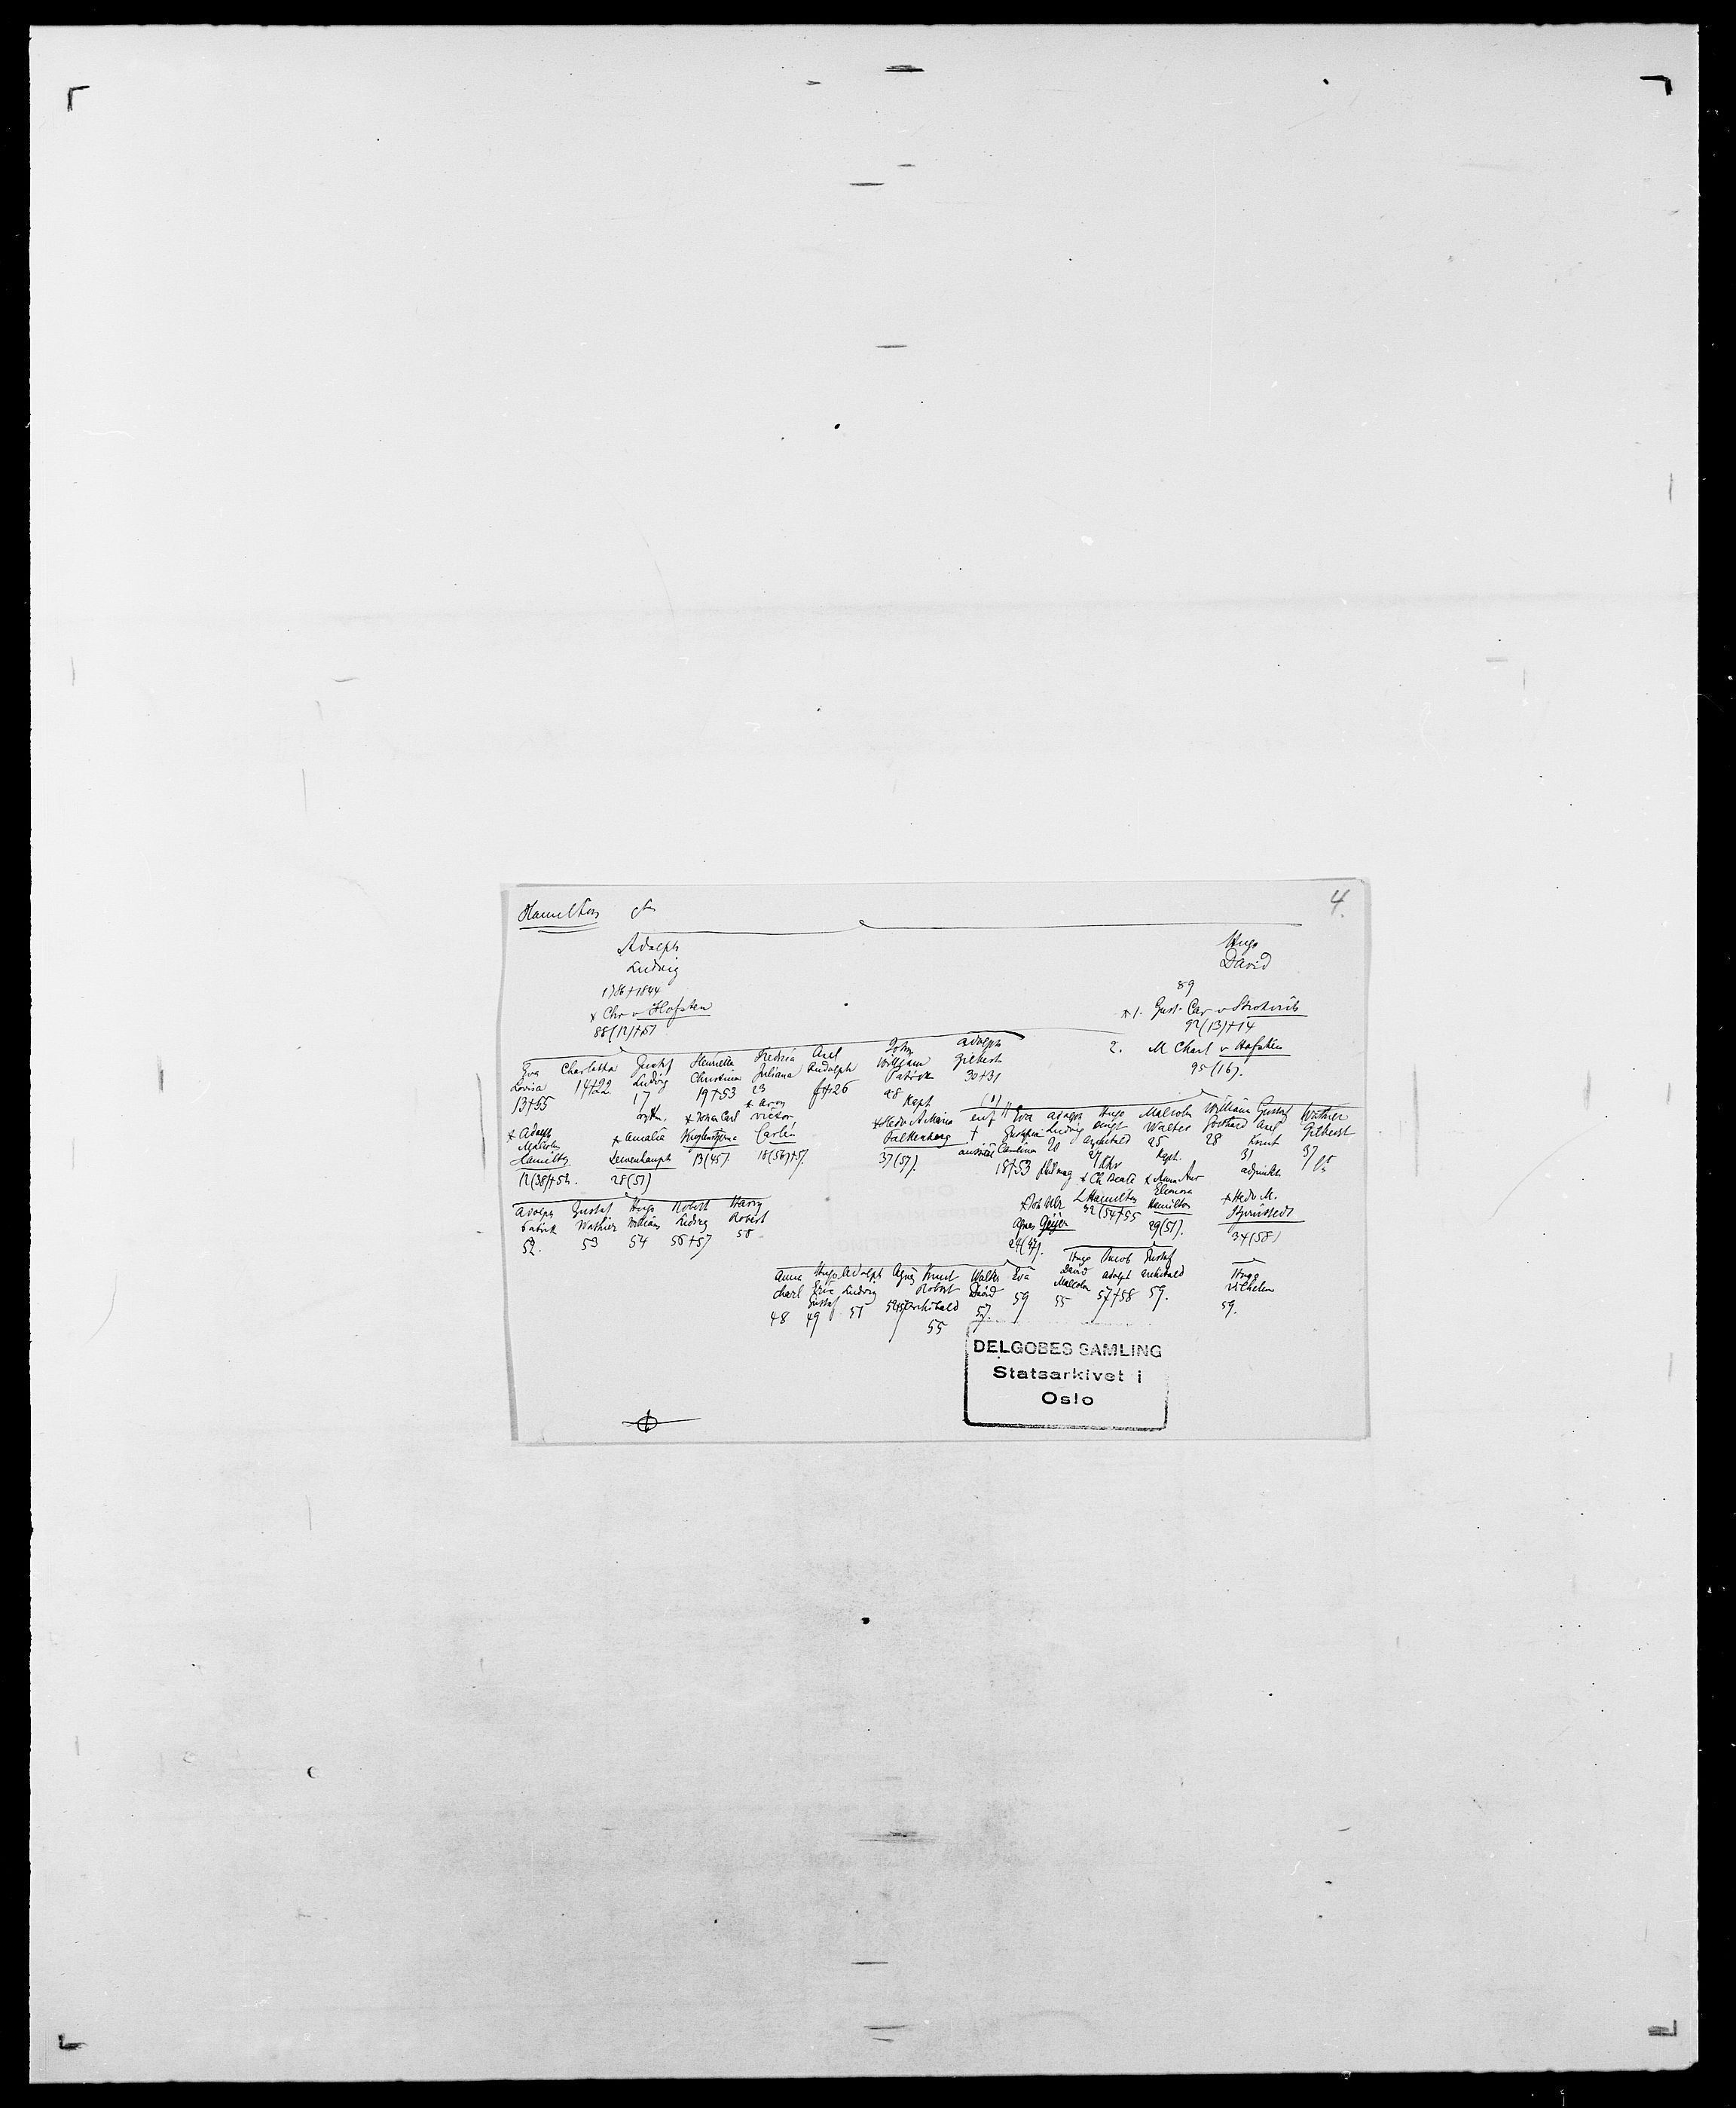 Hamilton
4.
Adolph
Ludvig
1786+1844
x Chr v Hofsten
88(12)+57
Hugo
David
89
x 1. Gust. Car v
92(13)+14
2. M Charl v Hofsten
95(16).
Eva
Lovisa
13+55
x Adolph
Malcolm
Hamilton
12(38)+52.
Charlotta
14+22
Gustaf
Ludvig
17
x Amalia
Lewenhaupt
28(51)
Henrietta
Christina
19+53
x Johan Carl
13(45).
Fredrica
Juliana
23
x Aron
Victor
Carlén
18(56)+57.
Axel
Rudolph
+26
John
William
Patrick
28 Kapt
x Hedv A Maria
Falkenberg
37(57).
Adolph
Gilbert
30+31
Eva
Carolina
18+53
Adolph
Ludvig
20
x
Agnes Geijer
24(47).
Hugo
Archibald
x Ch Beata
L Hamilton
32(54)+55
Malcolm
Walter
25
Kapt.
x Anna
Eleonora
Hamilton
29(51).
William
Gotthard
28
Gustaf
Axel
Knut
31
adjunkt
x Hedv M.
34(58)
Walther
Gilbert
37
Adolph
Patrick
52.
Gustaf
Walther
53
Hugo
William
54
Robert
Ludvig
56+57
Harry
Robert
58.
Anna
Charl
48
Hugo
Eric
Gustaf
49
Adolph
Ludvig
51
Agnes
Knut
Robert
Archibald
55
Walter
David
57.
Eva
59
Hugo
David
Malcolm
55
Jacob
Adolph
57+58
Gustaf
Archibald
59.
Hugo
Wilhelm
59.
DELGOBES SAMLING
Statsarkivet i
Oslo